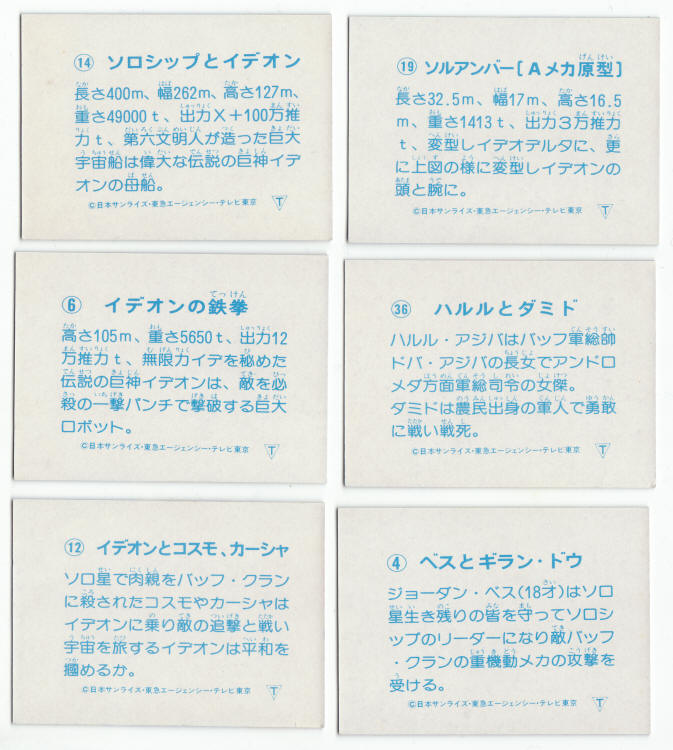 ⑭ ソロシップとイデオン
長さ400m、幅262m、高さ127m、
重さ49000t、出力X+100万推
力t、第六文明人が造った巨大
宇宙船は偉大な伝説の巨神イデ
オンの母船。
©日本サンライズ・東急エージェンシー・テレビ東京 T
⑲ ソルアンバー[Aメカ原型]
長さ32.5m、幅17m、高さ16.5
m、重さ1413t、出力3万推力
t、変型しレイデオデルタに、更
に上図の様に変型しイデオンの
頭と腕に。
©日本サンライズ・東急エージェンシー・テレビ東京 T
⑥ イデオンの鉄拳
高さ105m、重さ5650t、出力12
万推力t、無限力イデを秘めた
伝説の巨神イデオンは、敵を必
殺の一撃パンチで撃破する巨大
ロボット。
©日本サンライズ・東急エージェンシー・テレビ東京 T
㊱ ハルルとダミド
ハルル・アジバはバッフ軍総帥
ドバ・アジバの長女でアンドロ
メダ方面軍総司令の女傑。
ダミドは農民出身の軍人で勇敢
に戦い戦死。
©日本サンライズ・東急エージェンシー・テレビ東京 T
⑫ イデオンとコスモ、カーシャ
ソロ星で肉親をバッフ・クラン
に殺されたコスモやカーシャは
イデオンに乗り敵の追撃と戦い
宇宙を旅するイデオンは平和を
摑めるか。
©日本サンライズ・東急エージェンシー・テレビ東京 T
④ ベスとギラン・ドウ
ジョーダン・ベス(18才)はソロ
星生き残りの皆を守ってソロシ
ップのリーダーになり敵バッフ
・クランの重機動メカの攻撃を
受ける。
©日本サンライズ・東急エージェンシー・テレビ東京 T